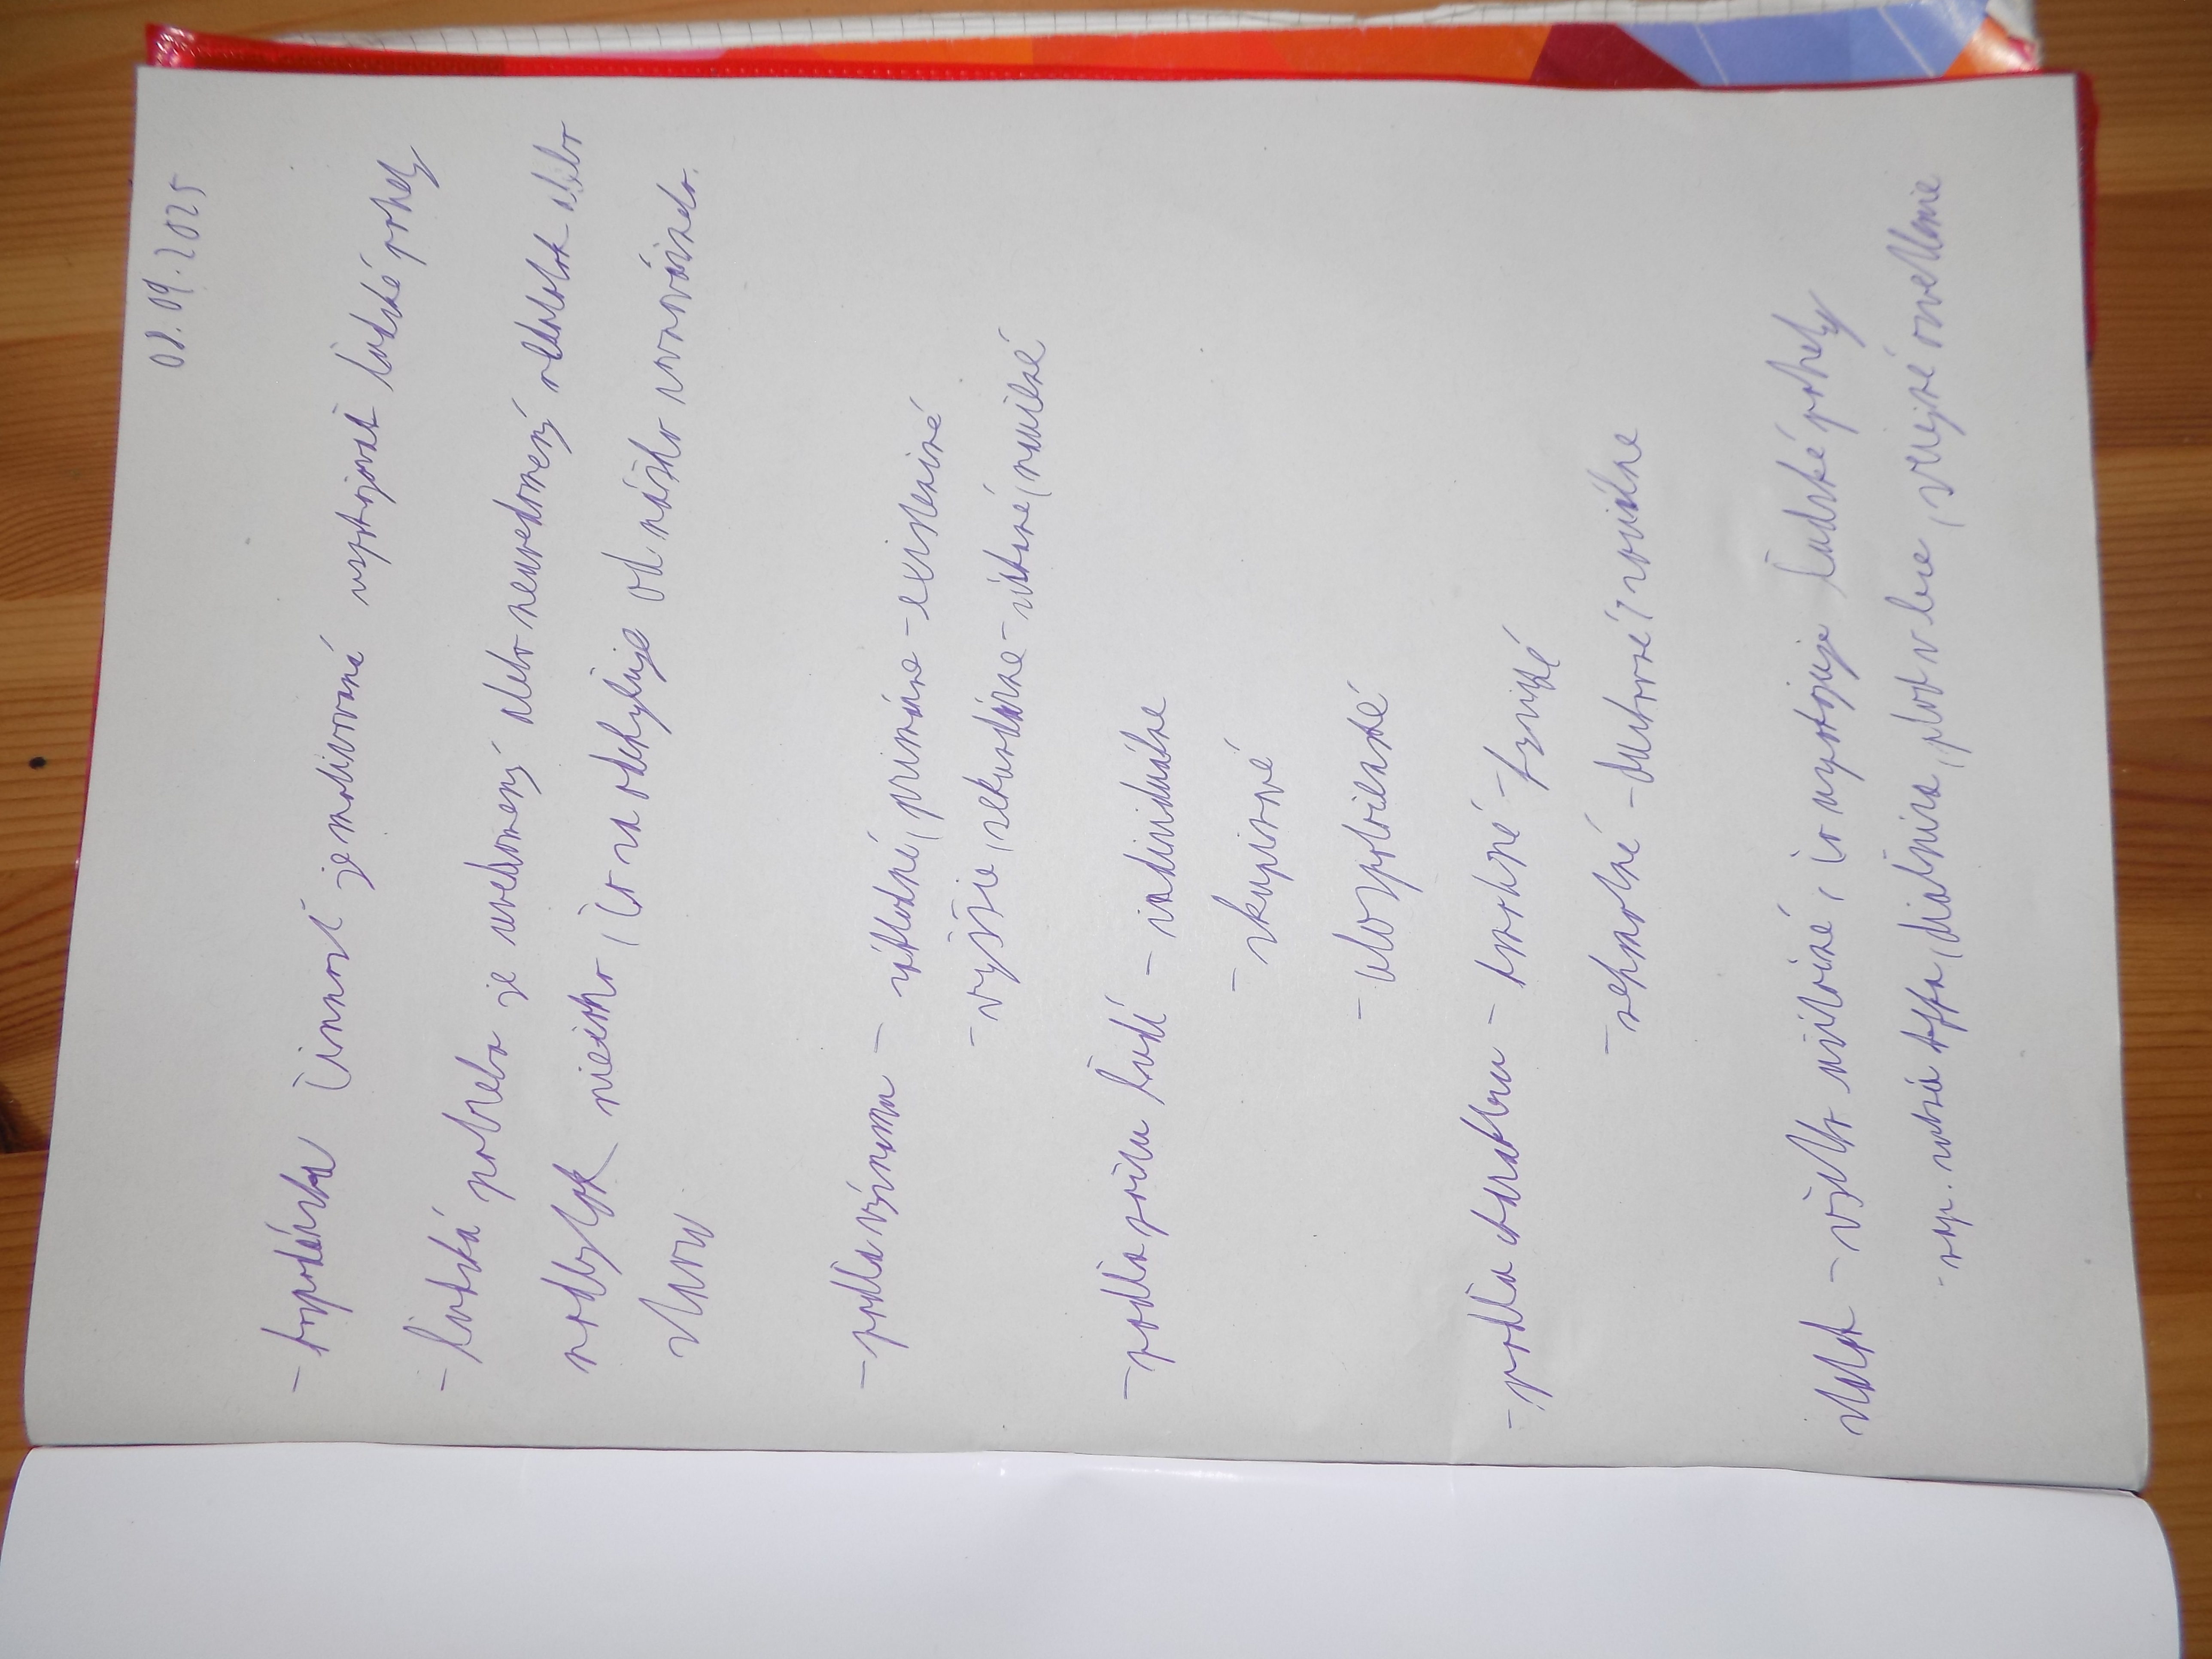 08.09.2025
- hospodárska činnosť je motivovaná uspokojovať ľudské potreby
- ľudská potreba je uvedomený alebo neuvedomený nedostatok alebo
nadbytok niečoho, čo sa odchyľuje od nášho rovnovážneho
stavu
- podľa významu - základné, primárne - existenčné
- vyššie, sekundárne - zbytné,
- podľa počtu ľudí - individuálne
- skupinové
- celospoločenské
- podľa charakteru - hmotné - fyzické
- nehmotné - duchovné, sociálne
statok - všetko užitočné, čo uspokojuje ľudské potreby
- nap. diaľnica, verejné osvetlenie